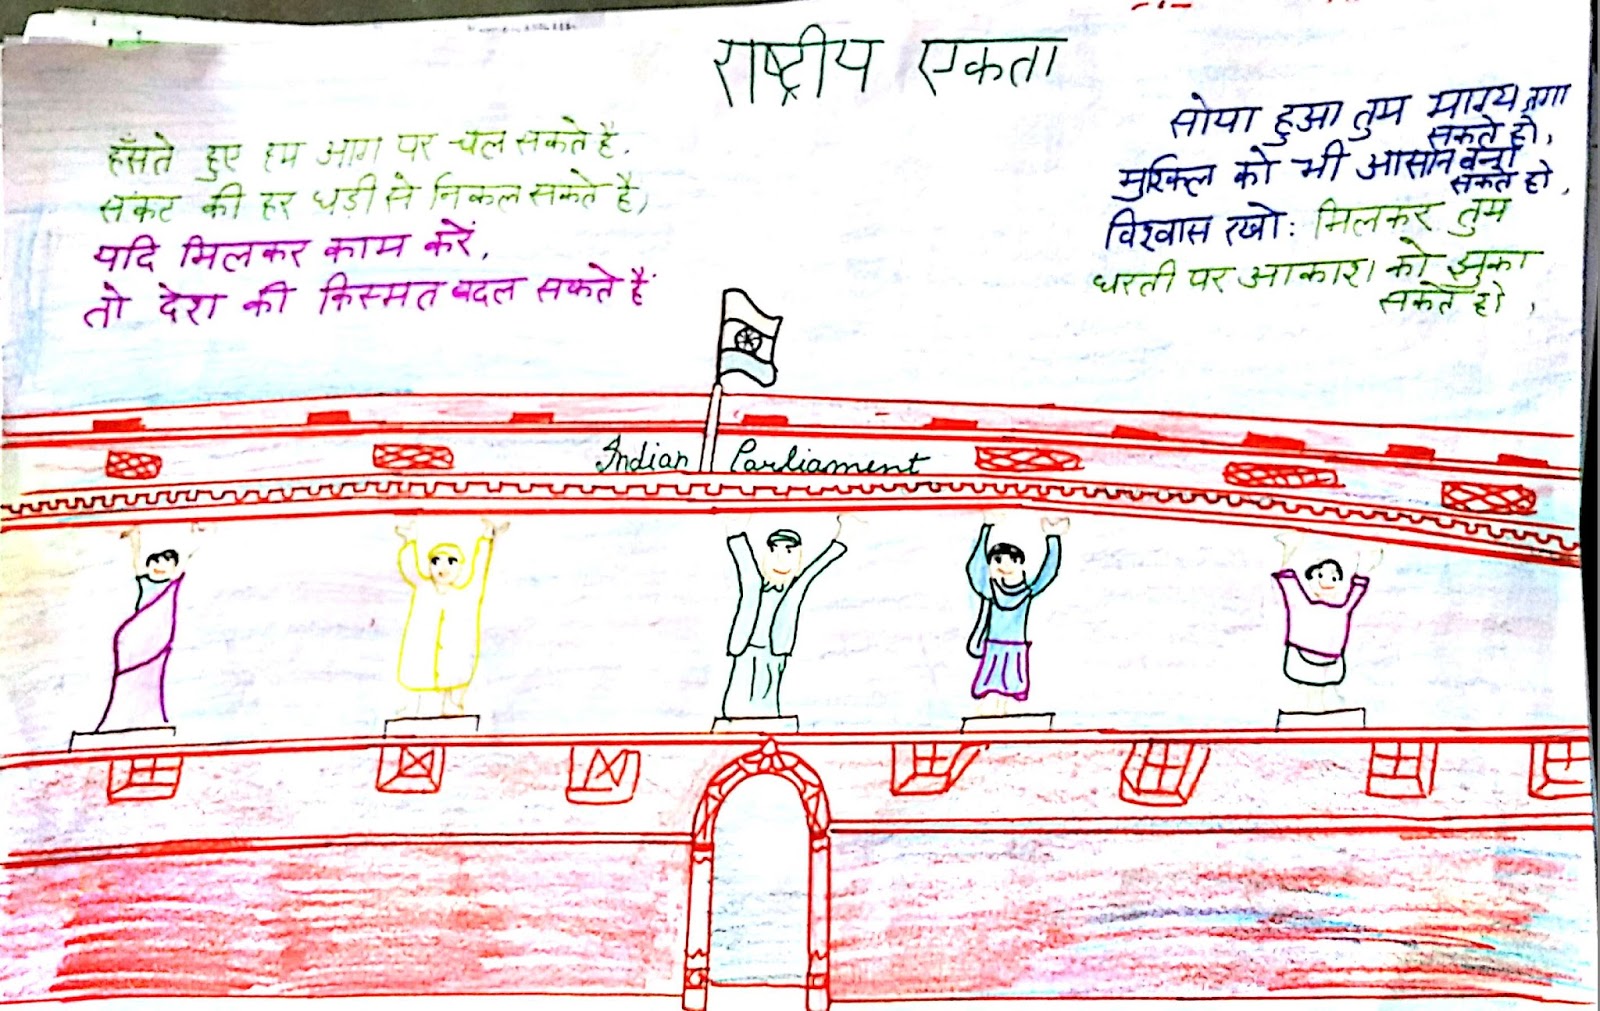 राष्ट्रीय एकता
हँसते हुए हम आग पर चल सकते है.
सकट की हर घड़ी से निकल सकते है,
यदि मिलकर काम करें,
तो देश की किस्मत बदल सकते हैं
सोया हुआ तुम भाग्य जगा
सकते हो,
मुश्किल को भी आसान बना
सकते हो,
विश्वास रखो: मिलकर तुम
धरती पर आकाश को झुका
सकते हो,
Indian Parliament